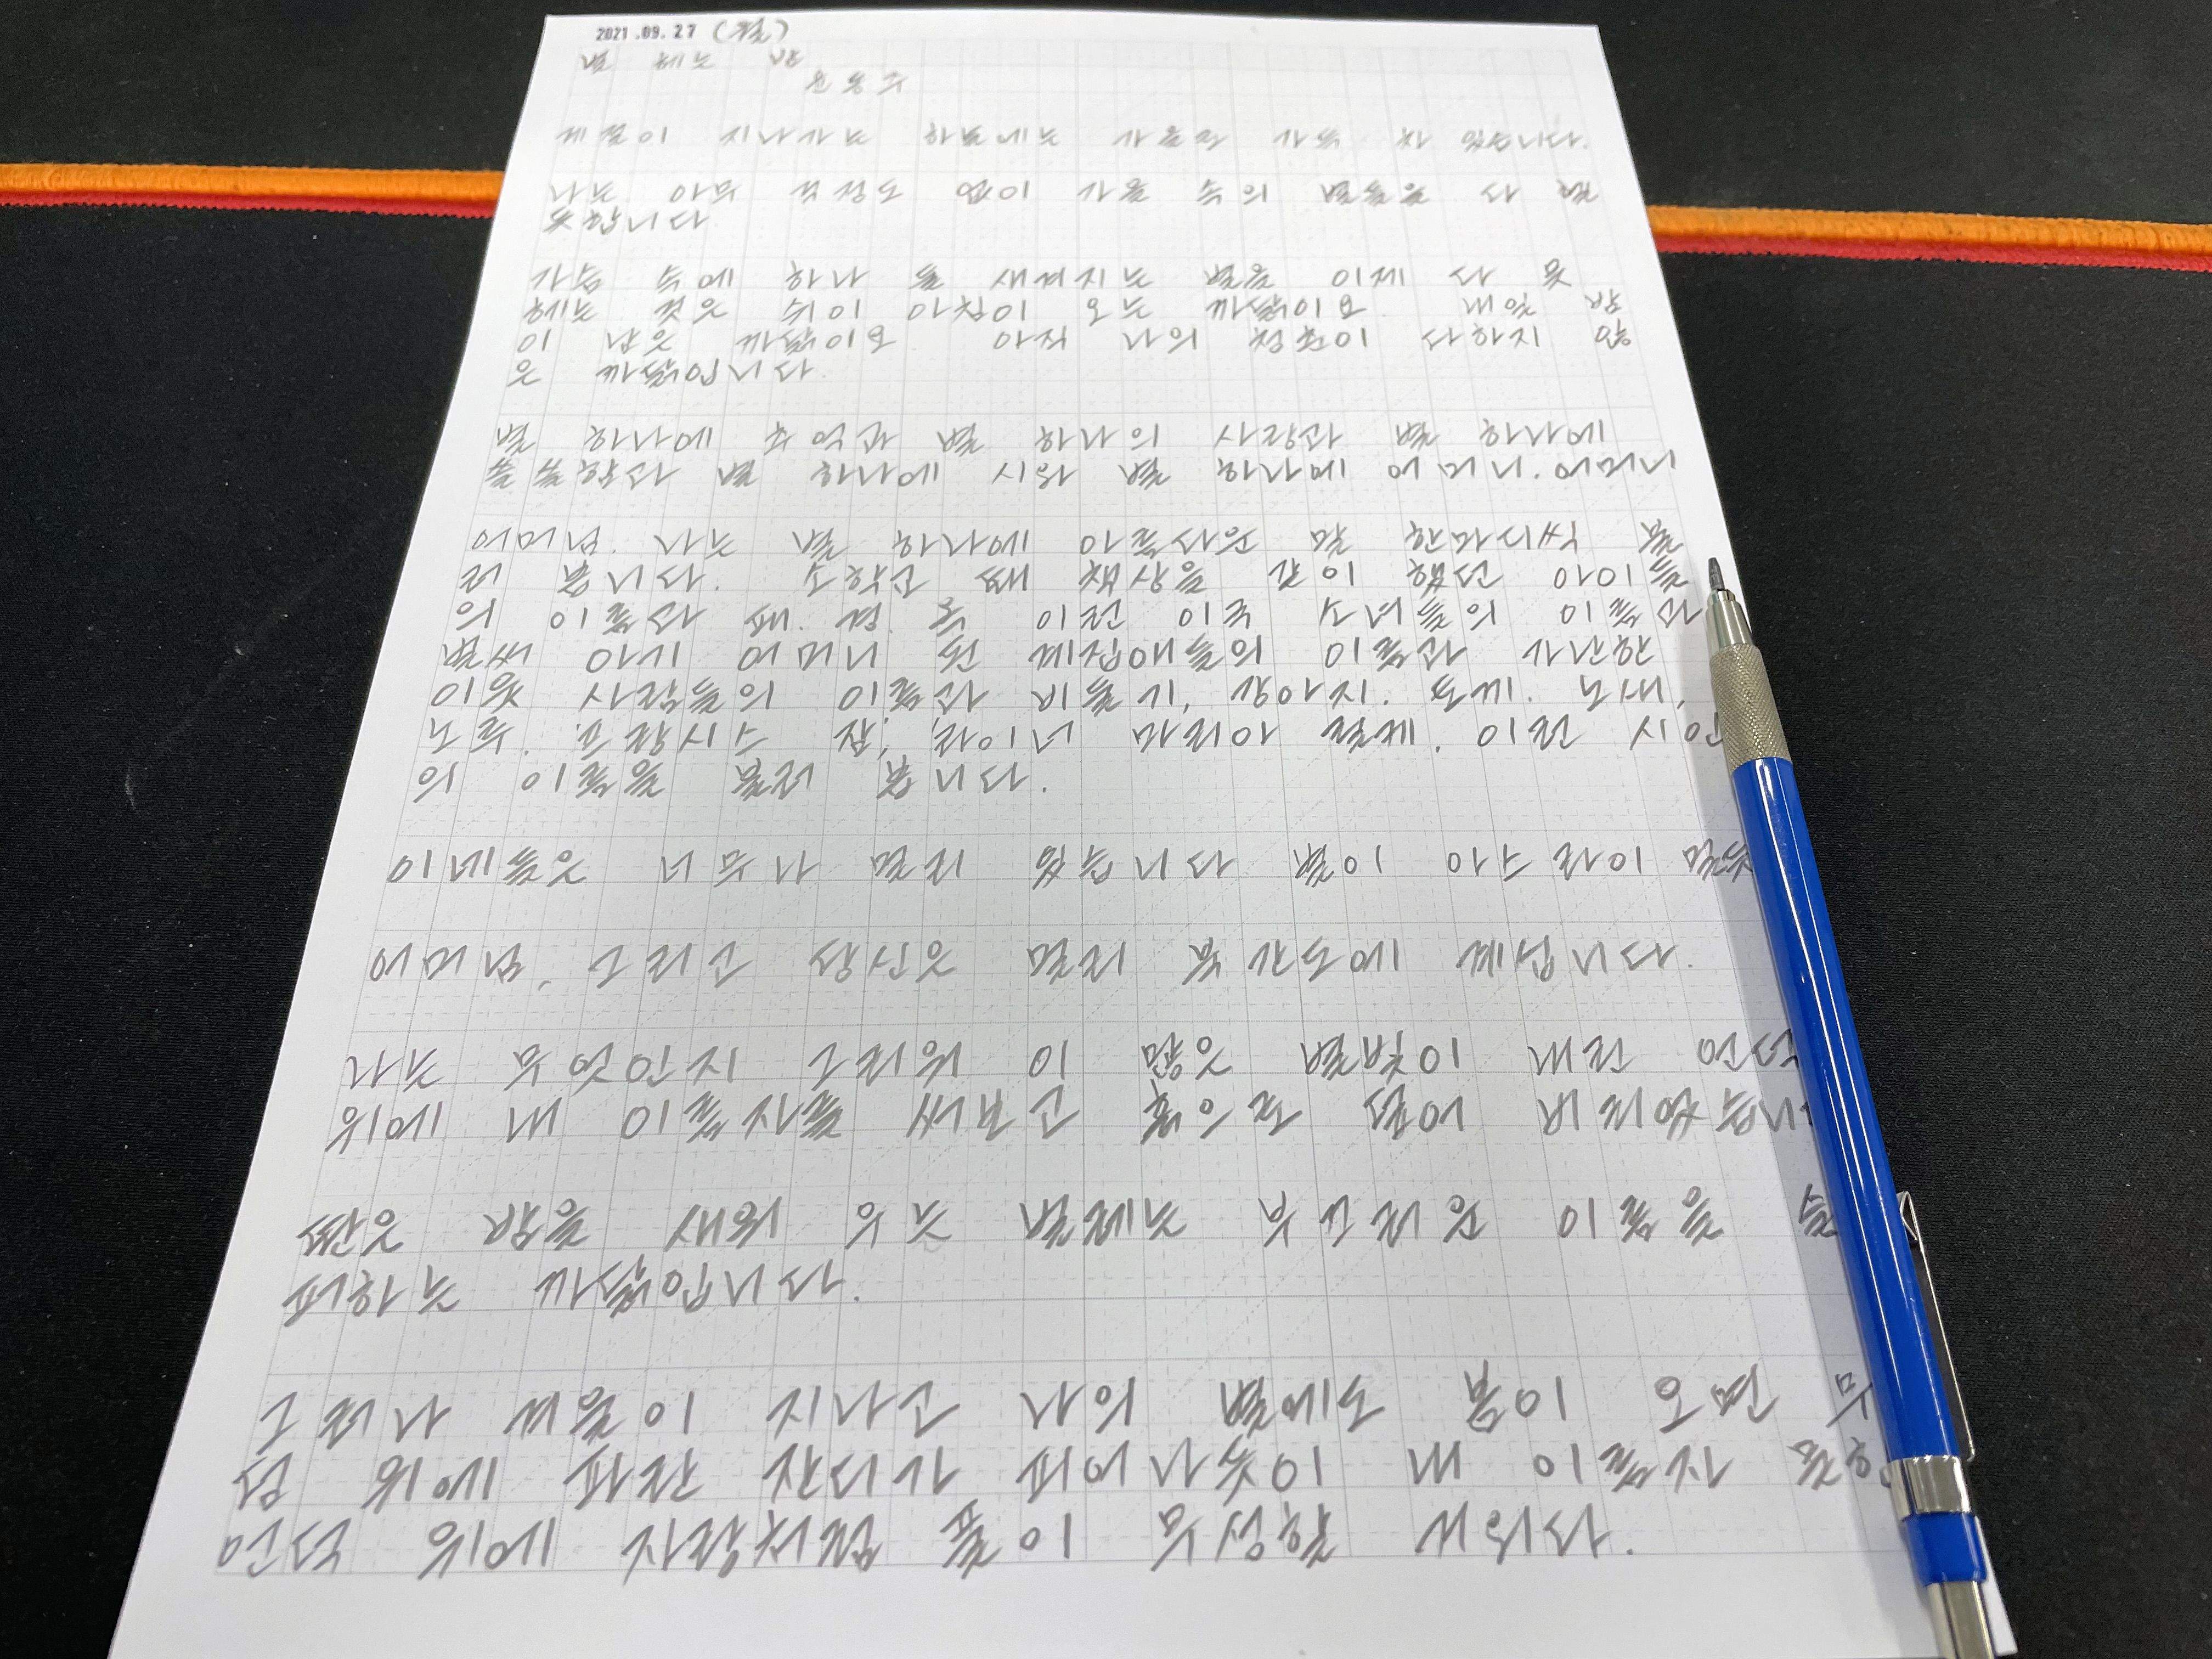 2021.09.27 (월)
별 헤는 밤
윤동주
계절이 지나가는 하늘에는 가을로 가득 차 있습니다.
나는 아무 걱정도 없이 가을 속의 별들을 다 헬
듯합니다
가슴 속에 하나 둘 새겨지는 별을 이제 다 못
헤는 것은 쉬이 아침이 오는 까닭이요. 내일 밤
이 남은 까닭이요. 아직 나의 청춘이 다하지 않
은 까닭입니다.
별 하나에 추억과 별 하나의 사랑과 별 하나에
쓸쓸함과 별 하나에 시와 별 하나에 어머니. 어머니
어머님. 나는 별 하나에 아름다운 말 한마디씩 불
러 봅니다. 소학교 때 책상을 같이 했던 아이들
의 이름과 패. 경. 옥 이런 이국 소녀들의 이름과
벌써 아기 어머니 된 계집애들의 이름과 가난한
이웃 사람들의 이름과 비둘기, 강아지. 토끼. 노새,
노루. 프랑시스 잠, 라이너 마리아 릴케. 이런 시인
의 이름을 불러 봅니다.
이네들은 너무나 멀리 있습니다 별이 아스라이 멀듯
어머님, 그리고 당신은 멀리 북간도에 계십니다.
나는 무엇인지 그리워 이 많은 별빛이 내린 언덕
위에 내 이름자를 써보고 흙으로 덮어 버리었습니
딴은 밤을 새워 우는 벌레는 부끄러운 이름을 슬
퍼하는 까닭입니다.
그러나 겨울이 지나고 나의 별에도 봄이 오면 무
덤 위에 파란 잔디가 피어나듯이 내 이름자 묻힌
언덕 위에 자랑처럼 풀이 무성할 거외다.